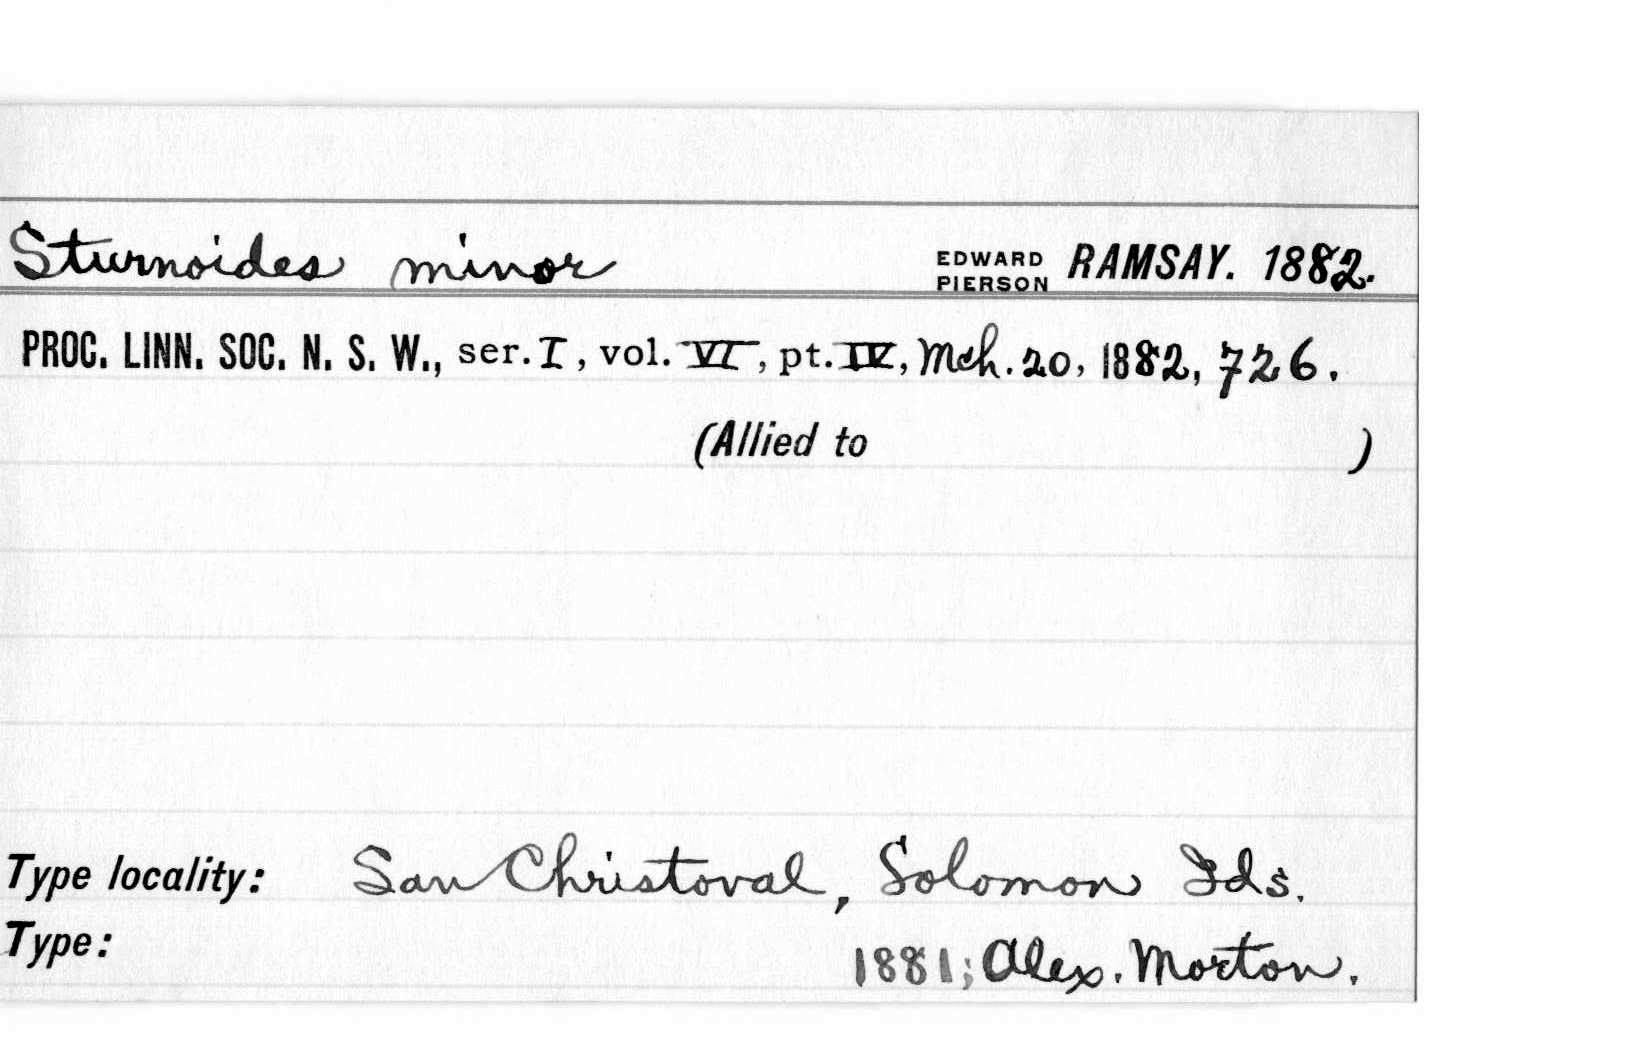 Sturnoides minor EDWARD PIERSON RAMSAY. 1882.
PROC. LINN. SOC. N. S. W., ser. I, vol. VI, pt. IV, Mch. 20, 1882, 726.
(Allied to )
Type locality: San Christoval, Solomon Ids.
Type: 1881; Alex. Morton.